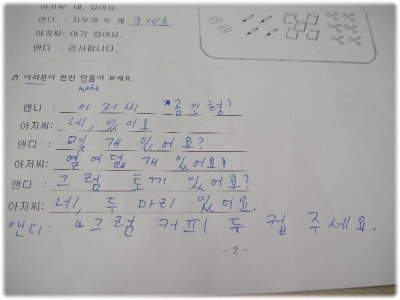 아저씨: 네, 있어요.
앤디 : 지우개 두 개 주세요
아저씨: 여기 있어요.
앤디 : 감사합니다.
♬ 여러분이 한번 만들어 보세요.
make
앤디 : 아저씨 곰인형?
아저씨: 네, 있어요
앤디 : 몇 개 있어요?
아저씨: 열 여덟 개 있어요!
앤디 : 그럼 토끼 있어요?
아저씨: 네, 두 마리 있어요.
앤디 : 그럼 커피 두 컵 주세요.
- 2 -